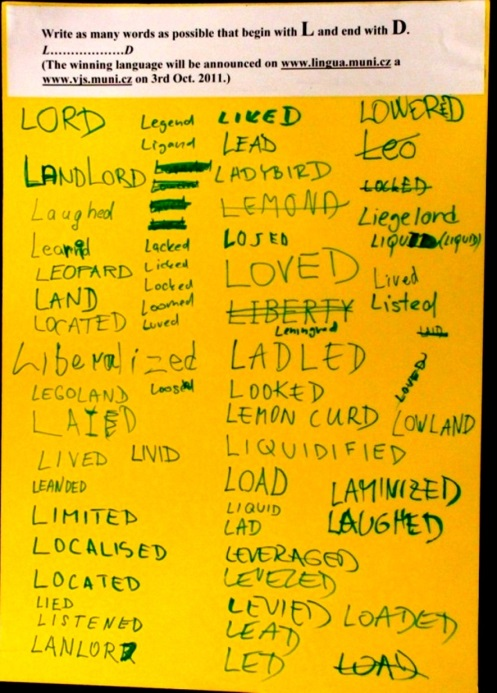 Write as many words as possible that begin with L and end with D.
L...................D
(The winning language will be announced on www.lingua.muni.cz a
www.vjs.muni.cz on 3rd Oct. 2011.)
LORD
LANDLORD
Laughed
LEOPARD
LAND
LOCATED
Liberalized
LEGOLAND
LIVED LIVID
LEANDED
LIMITED
LOCALISED
LOCATED
LIED
LISTENED
LANLORD
Legend
Ligand
Lacked
Licked
Locked
Loomed
Luved
LIKED
LEAD
LADYBIRD
LEMOND
LOSED
LOVED
LIBERTY
Leningrad
LADLED
LOOKED
LEMON CURD
LIQUIDIFIED
LOAD
LIQUID
LAD
LEVERAGED
LEVELED
LEVIED
LEAD
LED
LOWERED
LEO
LOCKED
Liegelord
LIQUID (LIQUID)
Lived
Listed
LOVED
LOWLAND
LAMINIZED
LAUGHED
LOADED
LOAD